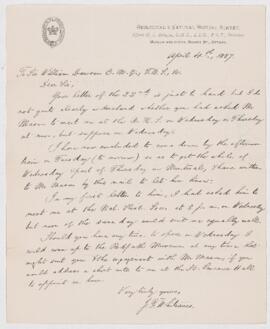 GEOLOGICAL & NATURAL HISTORY SURVEY.
MUSEUM AND OFFICE, SUSSEX ST., OTTAWA.
April 4th, 1887.
To Sir William Dawson C.M.G., F.R.S. &c
Dear Sir,
Your letter of the is just to hand but I do
not quite clearly understand whether you had asked Mr
to meet me at the on Wednesday or Thursday
at noon, but suppose on Wednesday.
I have now concluded to come down by the afternoon
train on Tuesday (to-morrow) so as to get the whole of
Wednesday & part of Thursday in Montreal, & have written
to Mr by this mail to let him know.
In my first letter to him, I had asked him to
meet me at the Nat. Hist. Soc. at 2 p.m. on Wednesday
but noon of the same day would suit me equally well.
Should you have any time to spare on Wednesday I
could come up to the Redpath Museum at any time
out you & the engagement with Mr if you
would address a short note to me at the St. Lawrence Hall
to appoint an hour.
Very truly yours,
J. F. Whiteaves.